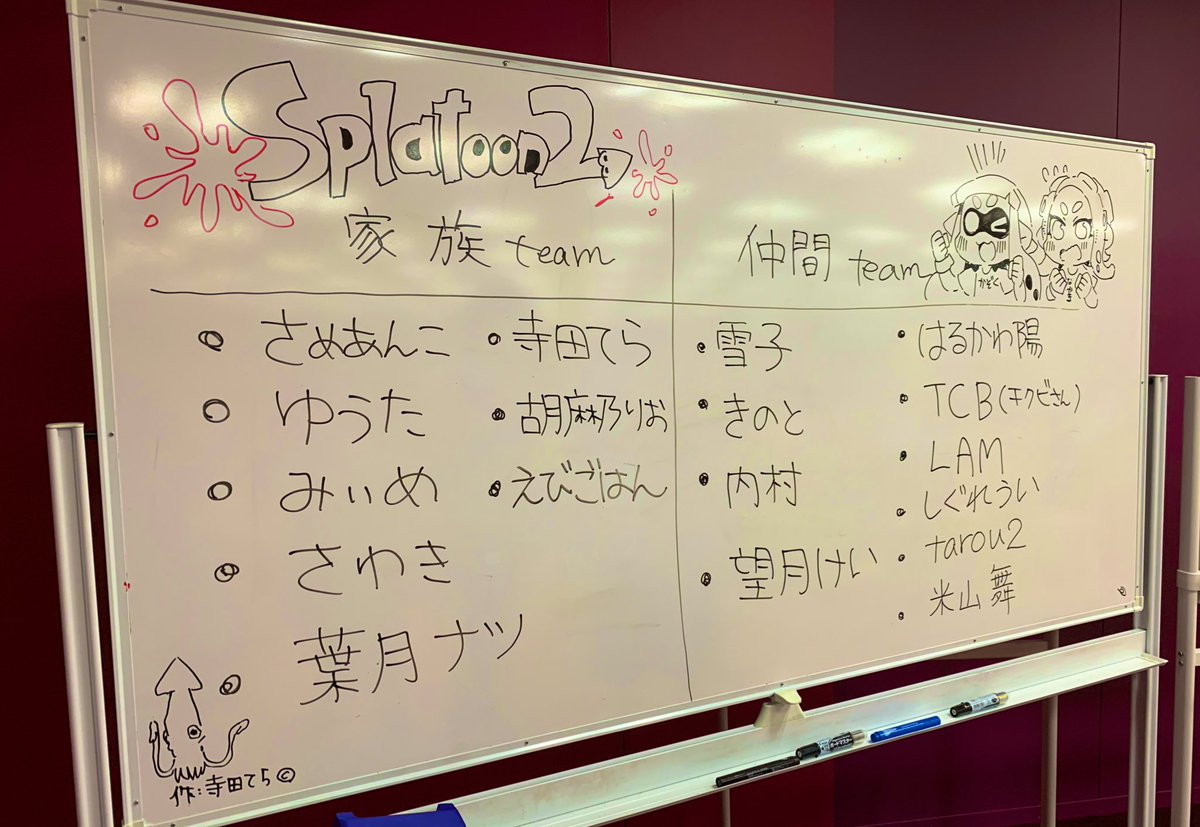 Splatoon2
家族 team
さめあんこ
ゆぅた
みぃめ
さわき
葉月ナツ
寺田てら
胡麻乃りお
えびごはん
作:寺田てら©
仲間 team
雪子
きのと
内村
望月けい
はるかわ陽
TCB(チクビさん)
LAM
しぐれうい
tarou2
米山舞
かぞく